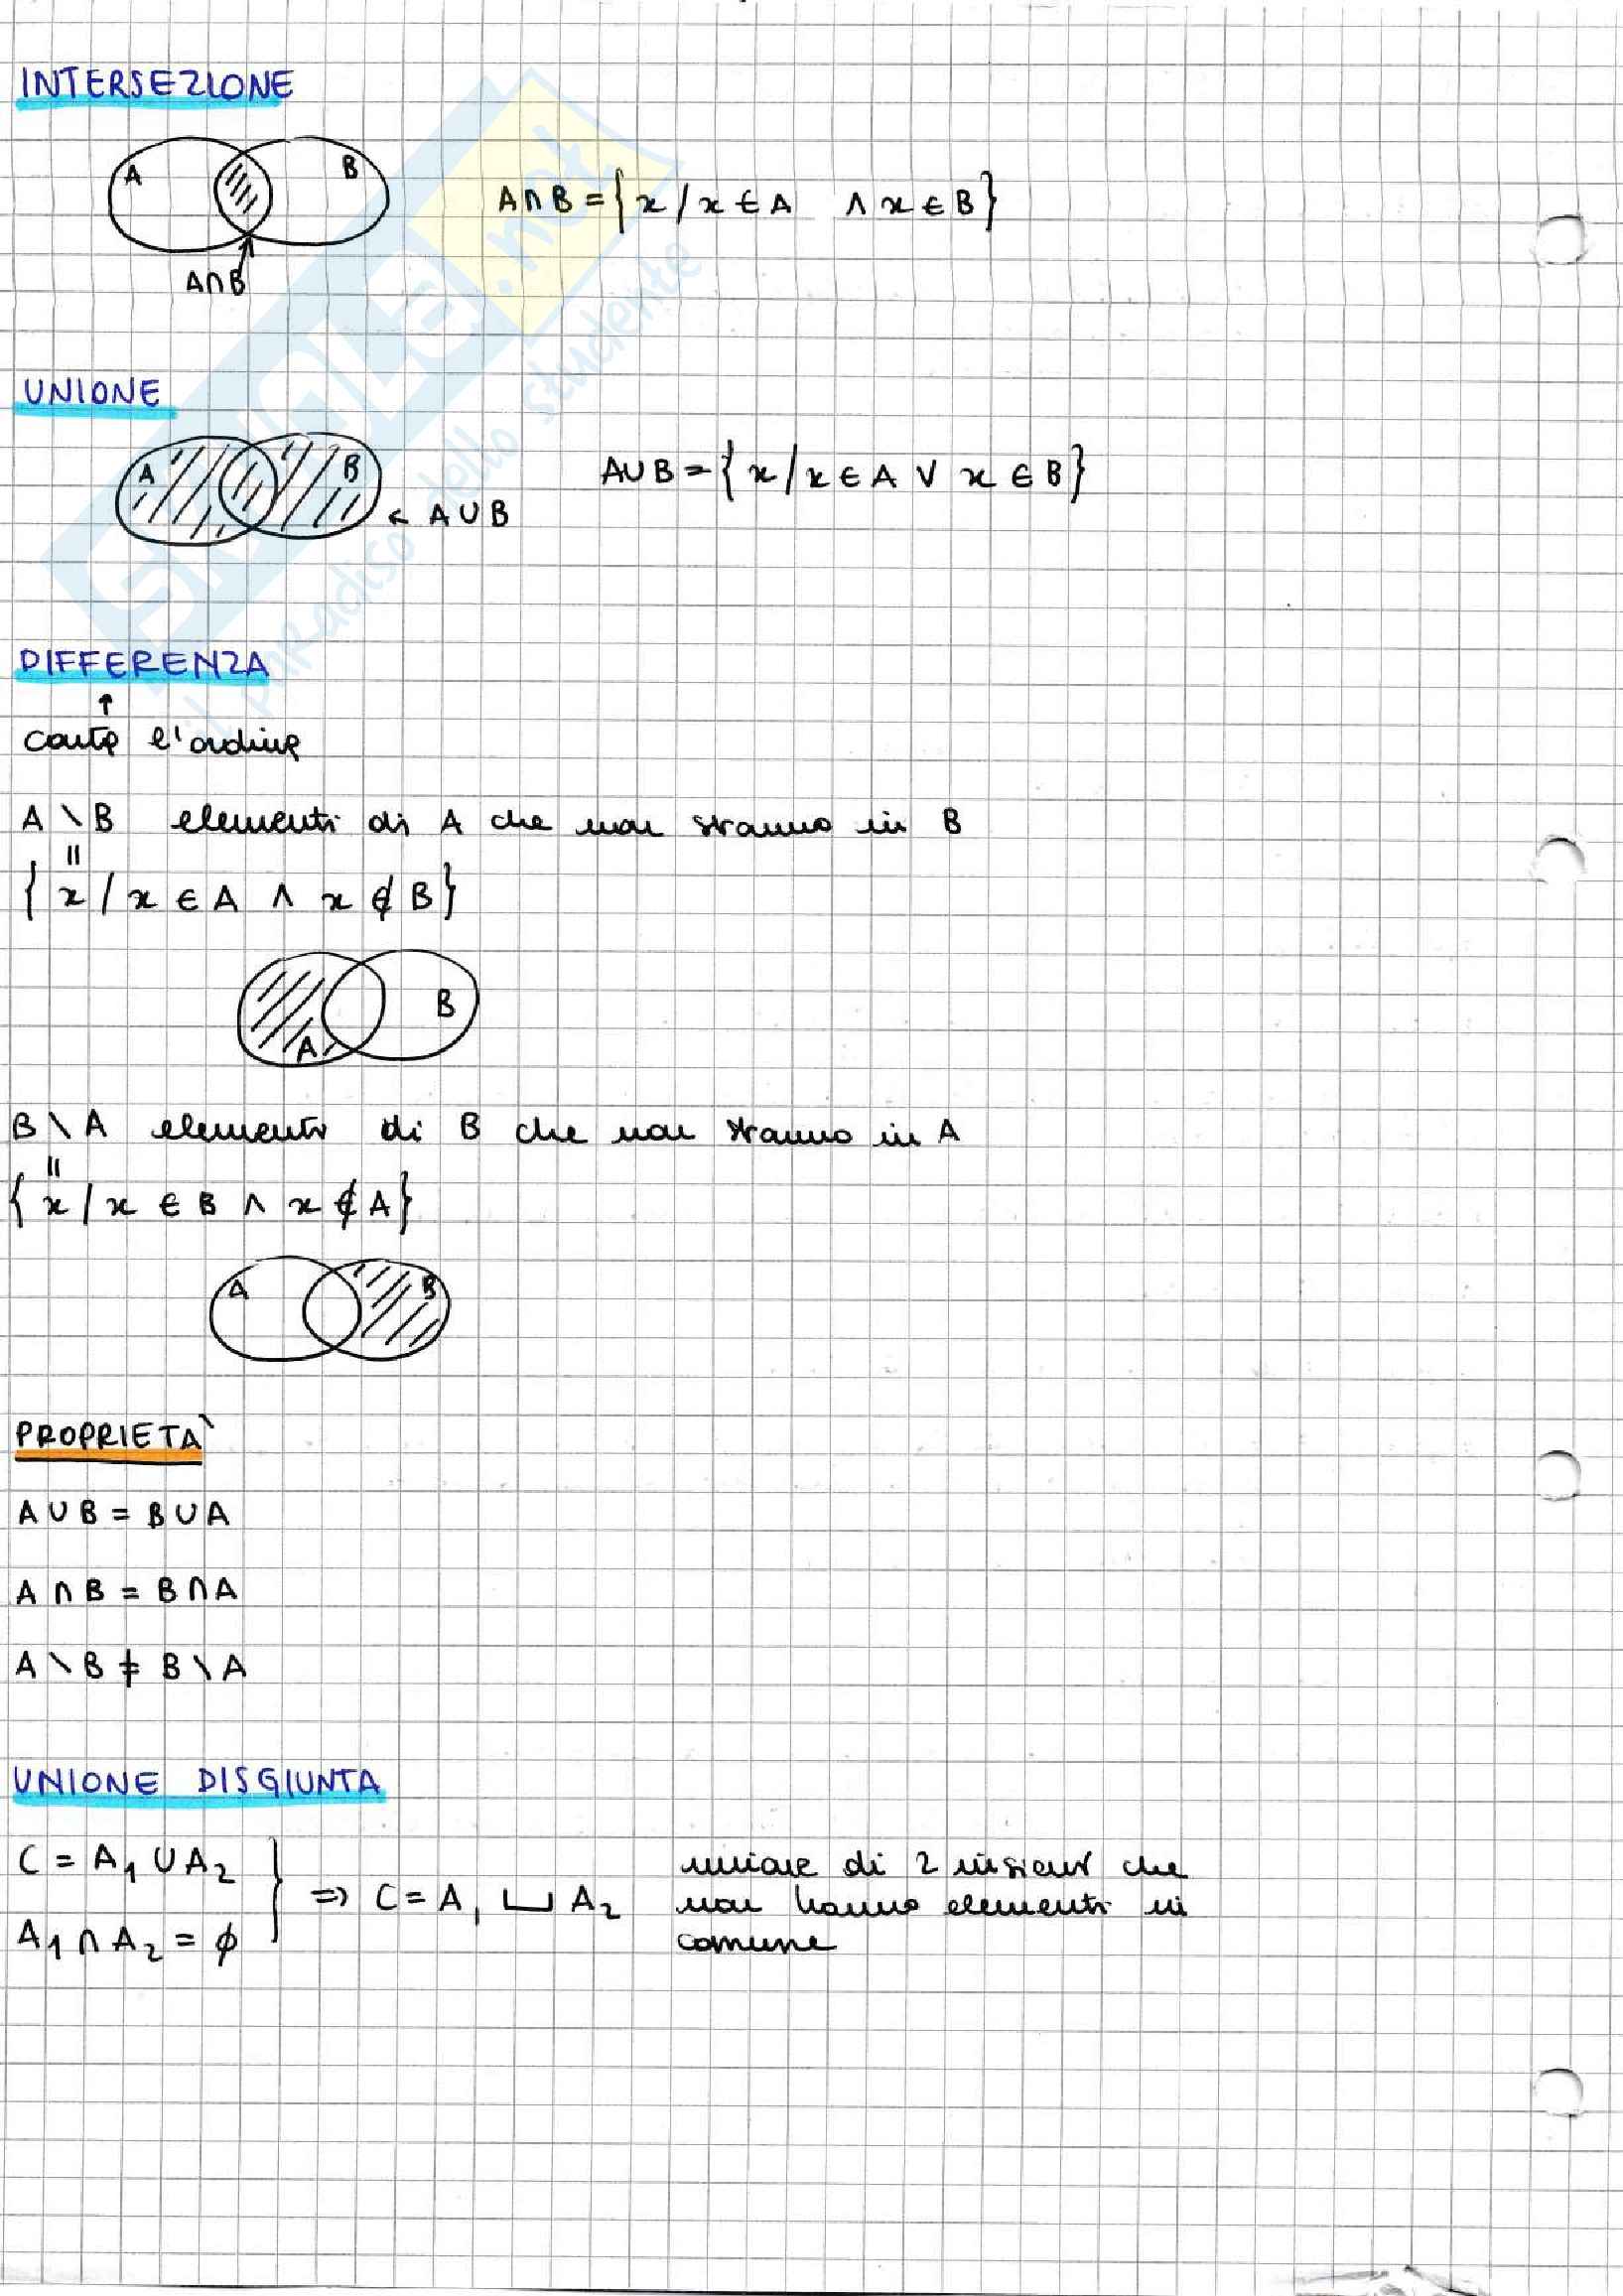 INTERSEZIONE
A B
A∩B = {x / x ∈ A ∧ x ∈ B}
A∩B
UNIONE
A B
A∪B = {x / x ∈ A ∨ x ∈ B}
← A∪B
DIFFERENZA
↑
conta l'ordine
A \ B elementi di A che non stanno in B
=
{x / x ∈ A ∧ x ∉ B}
B
A
B \ A elementi di B che non stanno in A
=
{x / x ∈ B ∧ x ∉ A}
A B
PROPRIETA'
A ∪ B = B ∪ A
A ∩ B = B ∩ A
A \ B ≠ B \ A
UNIONE DISGIUNTA
C = A₁ ∪ A₂
A₁ ∩ A₂ = ∅
} => C = A₁ ⊔ A₂
unione di 2 insiemi che
non hanno elementi in
comune
SKUOLA.net
il paradiso dello studente